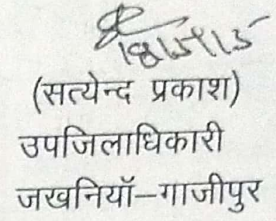 (सत्येन्द प्रकाश)
उपजिलाधिकारी
जखनियॉ-गाजीपुर